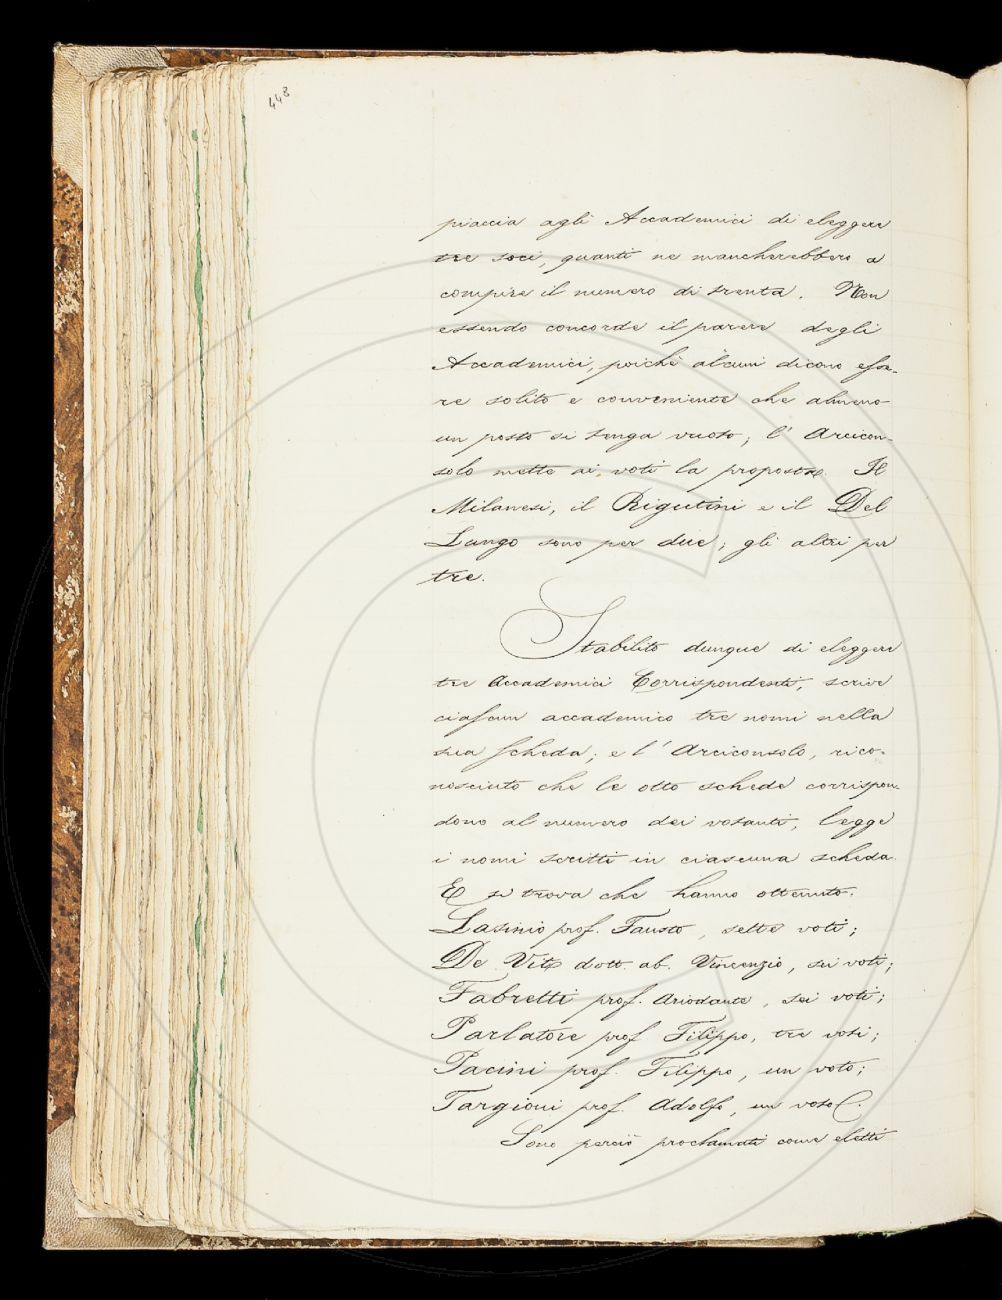 448
piaccia agli Accademici di eleggere
tre soci, quanti ne mancherebbero a
compire il numero di trenta. Non
essendo concorde il parere degli
Accademici, poichè alcuni dicono esse-
re solito e conveniente che almeno
un posto si tenga vuoto, l'Arcicon-
solo mette ai voti la proposta. Il
Milanesi, il Rigutini e il Del
Lungo sono per due; gli altri per
tre.
Stabilito dunque di eleggere
tre Accademici Corrispondenti, scrive
ciascun accademico tre nomi nella
sua scheda; e l'Arciconsolo, rico-
nosciuto che le otto schede corrispon-
dono al numero dei votanti, legge
i nomi scritti in ciascuna scheda.
E si trova che hanno ottenuto:
Lasinio prof. Fausto, sette voti;
De Vit dott. ab. Vincenzio, sei voti;
Fabretti prof. Ariodante, sei voti;
Parlatore prof Filippo, tre voti;
Pacini prof. Filippo, un voto;
Targioni prof. Adolfo, un voto.
Sono perciò proclamati come eletti